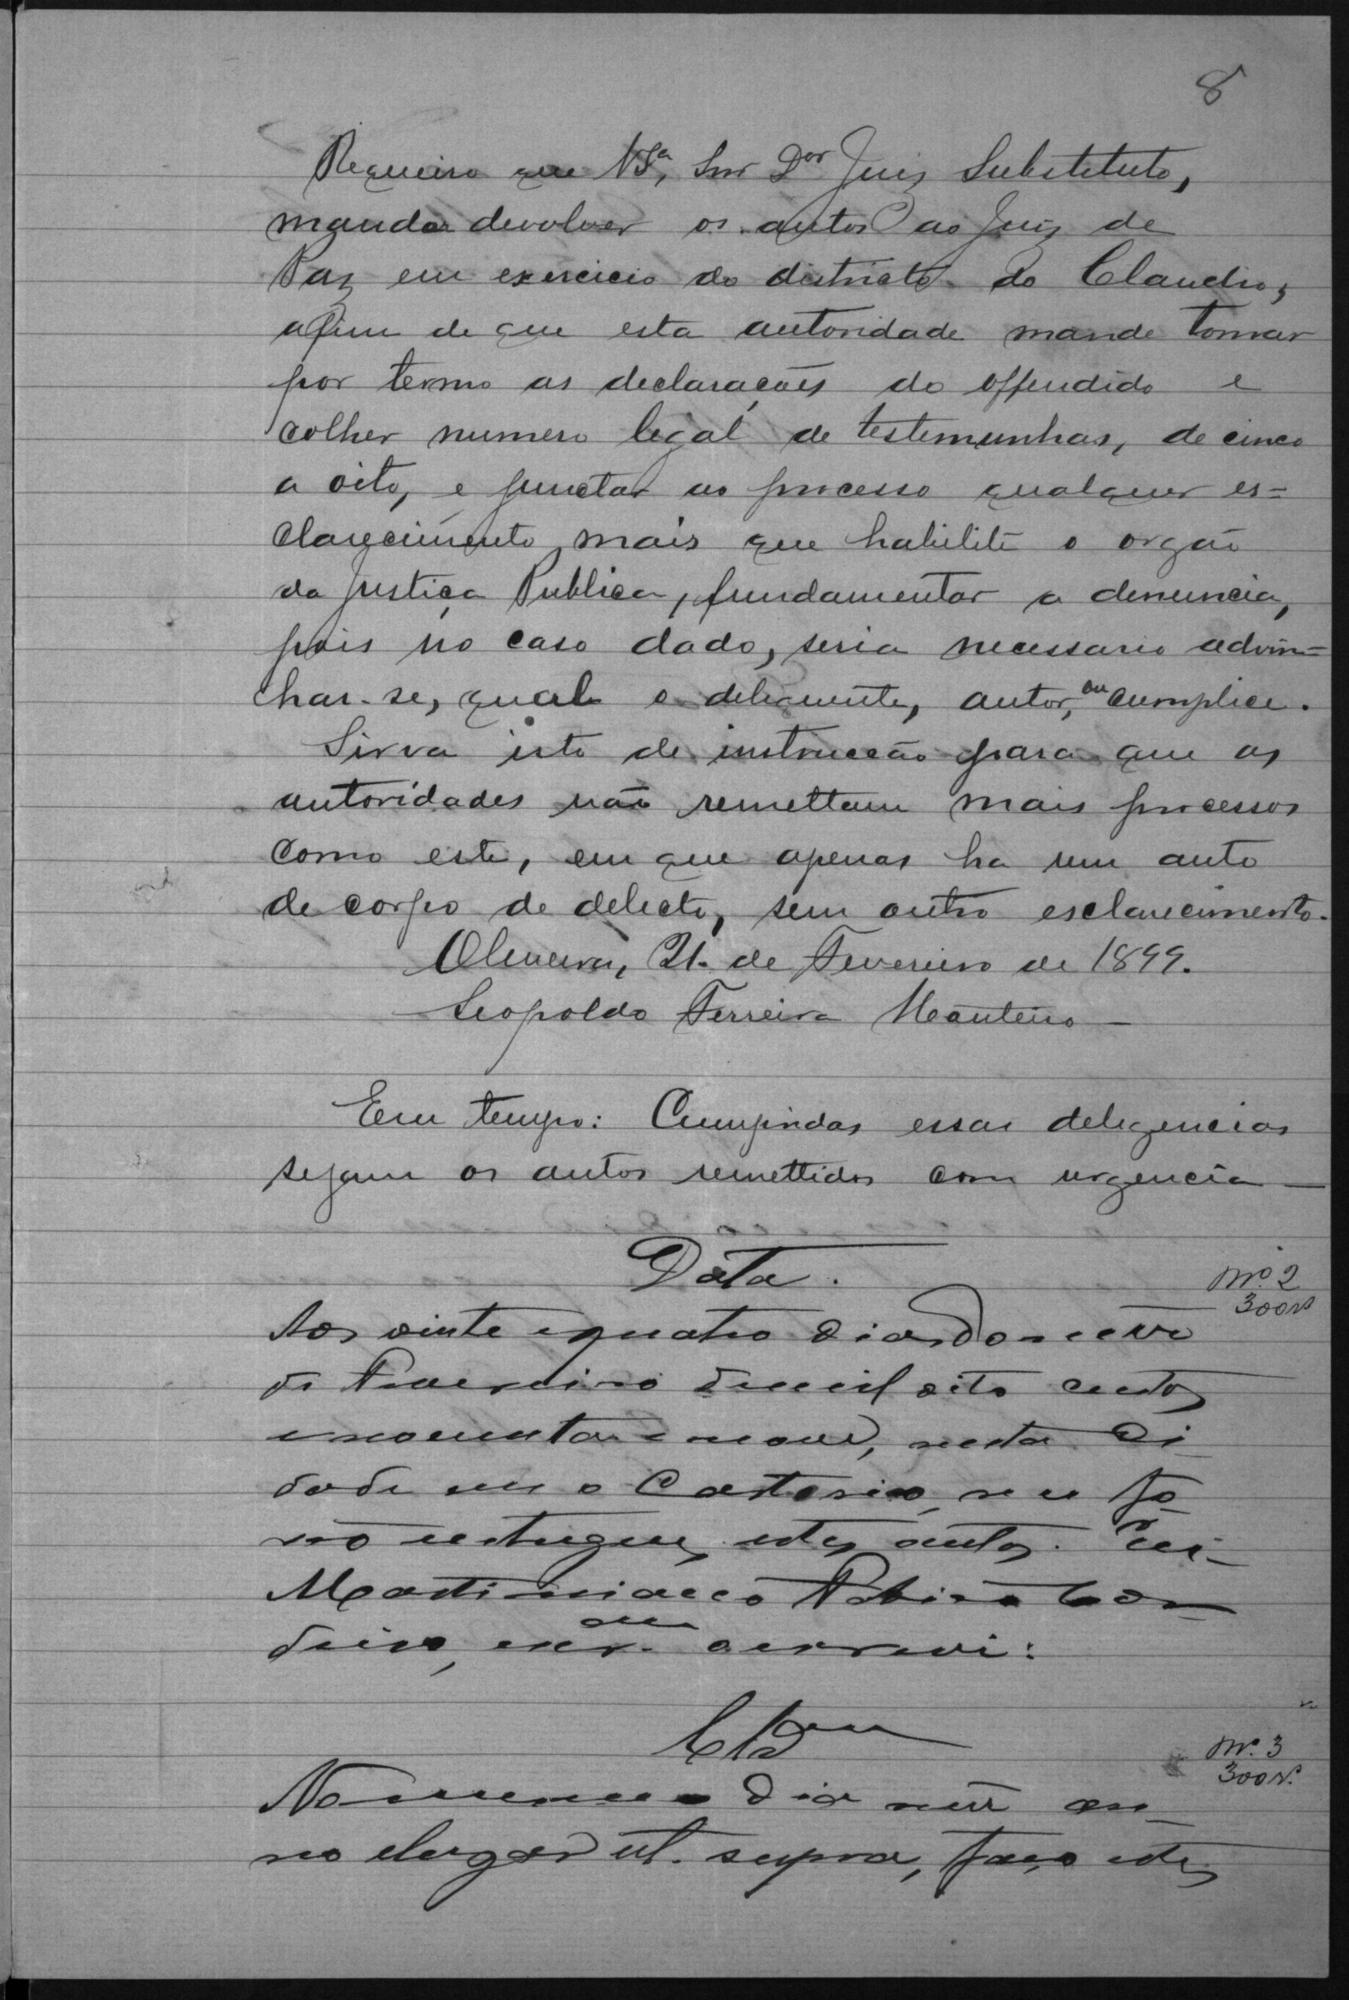 8
Requeiro que V.Sª, Snr Dor Juiz Substituto,
manda devolver os autos ao Juiz de
Paz em exercicio do districto do Claudio,
afim de que esta autoridade mande tomar
por termo as declarações do offendido e
colher numero legal de testemunhas, de cinco
a oito, e junctar ao processo qualquer es=
clarecimento mais que habilite o orgão
da Justiça Publica, fundamentar a denuncia,
pois no caso dado, seria necessario advin=
har-se, qual o deliquente, autor, ou cumplice.
Sirva isto de instrucção para que as
autoridades não remettam mais processos
como este, em que apenas ha um auto
de corpo de delicto, sem outro esclarecimento.
Oliveira, 21 de Fevereiro de 1899.
Leopoldo Ferreira Monteiro
Em tempo: Cumpridas essas deligencias
sejam os autos remettidos com urgencia
Data.
Nº 2
300rs
Aos vinte e quatro dias do mez
de Fevereiro de mil oito centos
e noventa e nove, nesta Ci
dade em o Cartorio, me fo
rão entregues estes autos. Eu
Martiniano Ribeiro
escram o escrevi:
Clsam
Nº 3
300rs.
No mesmo dia mez an
no e lugar ut supra, faço estes